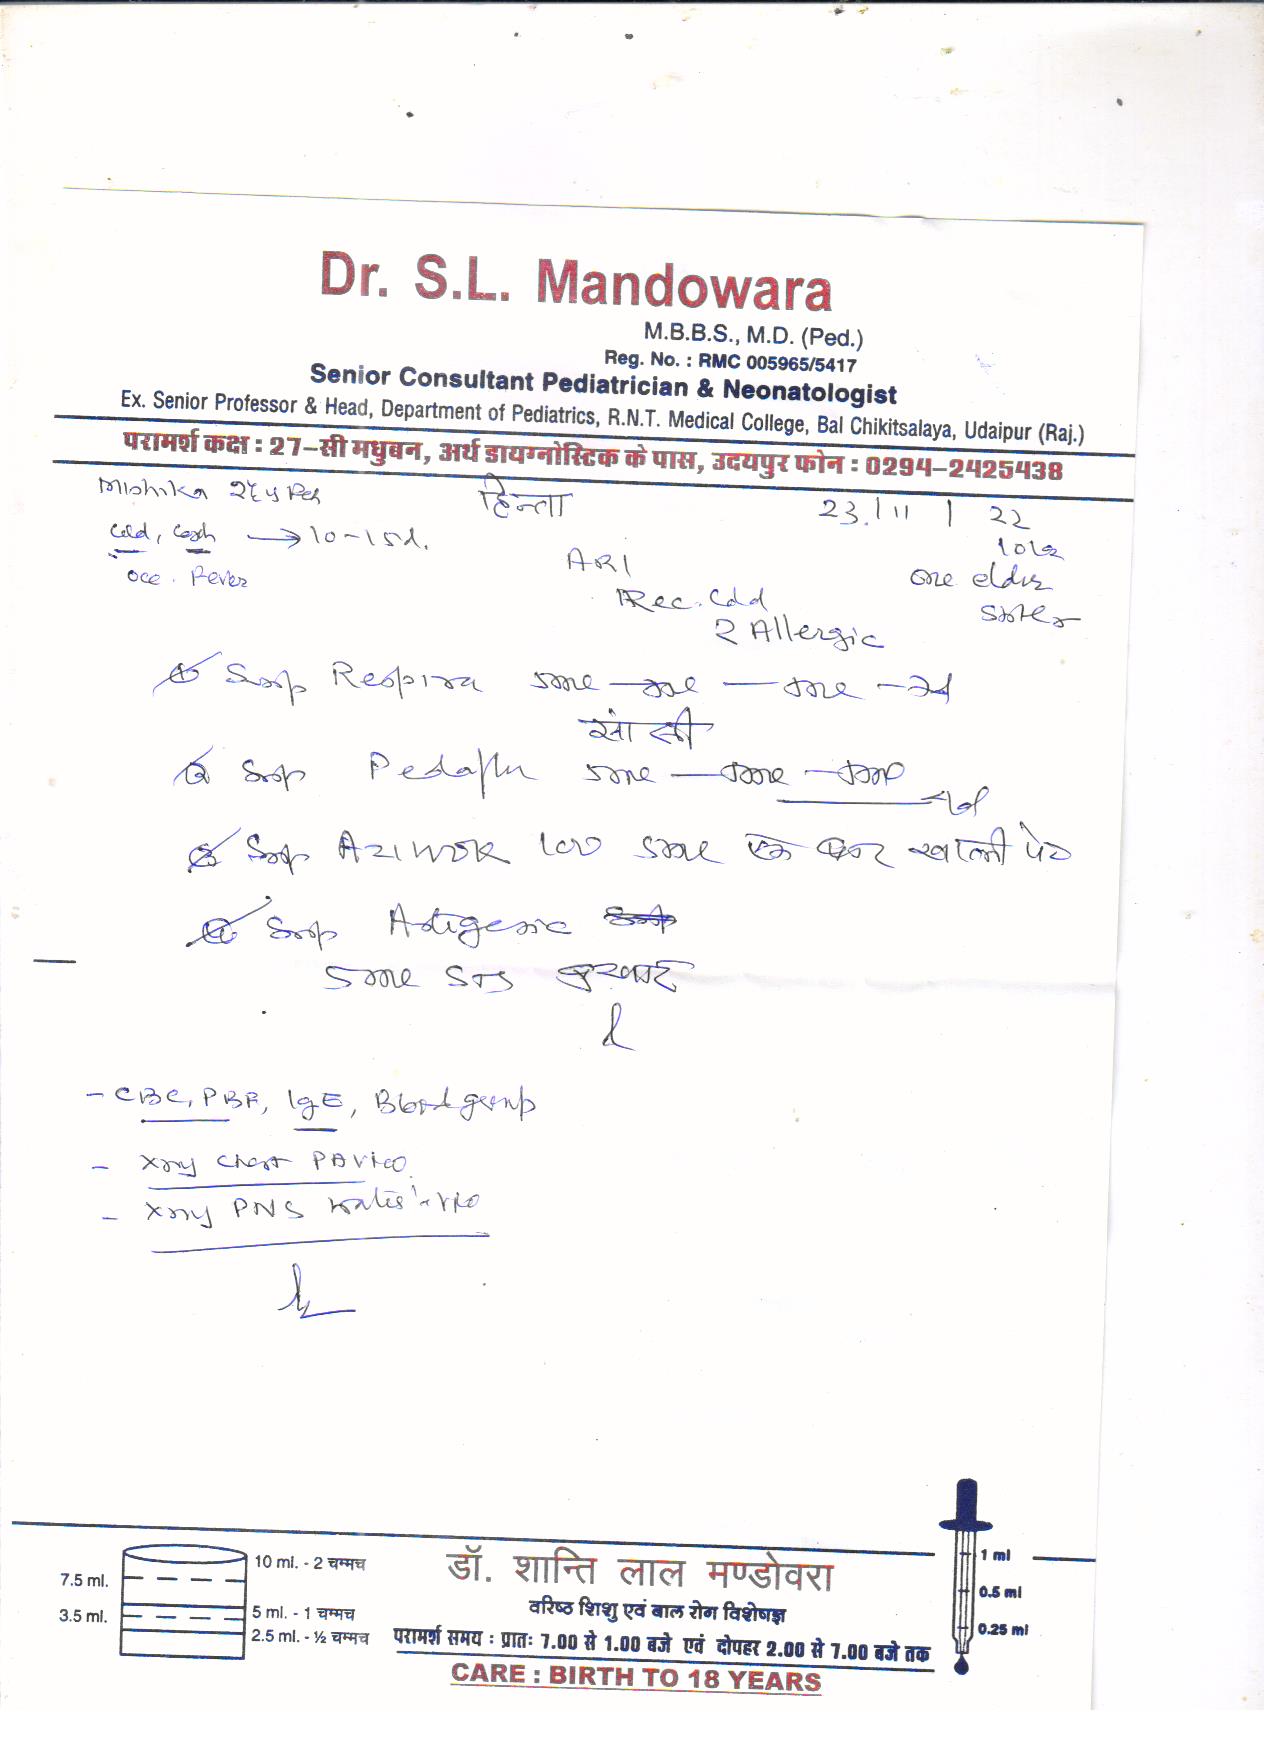 Dr. S.L. Mandowara
M.B.B.S., M.D. (Ped.)
Reg. No. : RMC 005965/5417
Senior Consultant Pediatrician & Neonatologist
Ex. Senior Professor & Head, Department of Pediatrics, R.N.T. Medical College, Bal Chikitsalaya, Udaipur (Raj.)
परामर्श कक्ष : 27-सी मधुबन, अर्थ डायग्नोस्टिक के पास, उदयपुर फोन : 0294-2425438
Mishika हिन्ता 23/11/22
Cold, Cough → 10-15d.
occ. Fever
ARI
Rec. Cold
2 Allergic
one elder
sister
Syp Respira 5ml
खांसी
Syp 5ml — 5ml — 5ml
Syp Aziwok 100 5ml एक बार खाली पेट
Syp
5ml SOS बुखार
- CBC, PBF, IgE, Blood group
- Xray Chest PA View
- Xray PNS Water's View
10 ml. - 2 चम्मच
7.5 ml.
3.5 ml.
5 ml. - 1 चम्मच
2.5 ml. - ½ चम्मच
डॉ. शान्ति लाल मण्डोवरा
वरिष्ठ शिशु एवं बाल रोग विशेषज्ञ
परामर्श समय : प्रातः 7.00 से 1.00 बजे एवं दोपहर 2.00 से 7.00 बजे तक
CARE : BIRTH TO 18 YEARS
1 ml
0.5 ml
0.25 ml